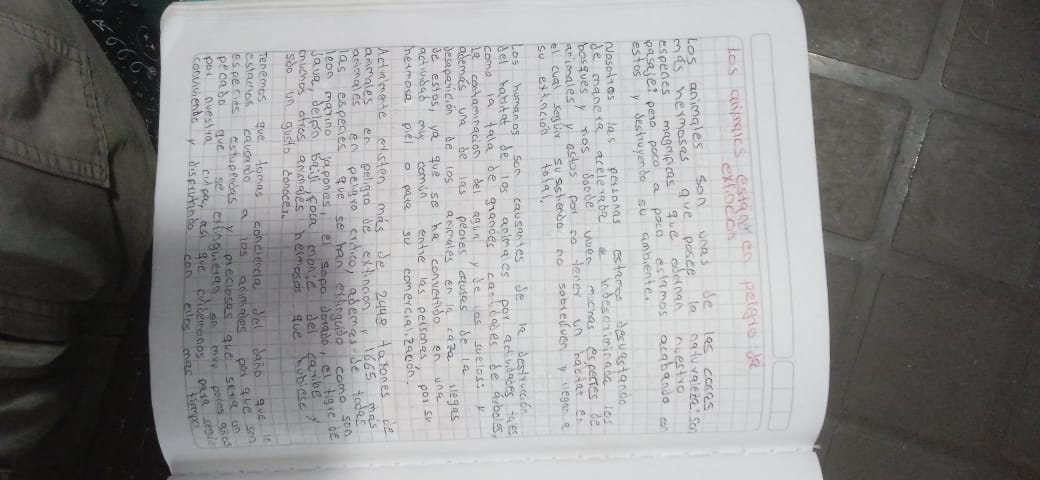 Los animales están en peligro de
extinción
Los animales son unas de las cosas
más hermosas que posee la naturaleza: son
especies magnificas que adornan nuestro
pasaje; pero poco a poco estamos acabando con
estos y destruyendo su ambiente.
Nosotros las personas estamos desvastando
de manera acelerada e indescriminada los
bosques y rios donde viven muchas especies de
animales y estos por no tener un hábitat en
el cual seguir su sistiendo no sobreviven y llegan a
su extinción total.
Los humanos son causantes de la destrucción
del habitat de los animales por actividades tales
como la tala de grandes cantidades de árboles,
la contaminación del agua y de los suelos; y
además una de las peores causas de la
desaparición de los animales en la caza ilegas
de estos, ya que se ha convertido en una
actividad muy común entre las personas, por su
hermosa piel o para su comercialización.
Actualmente existen más de 2448 taxones de
animales en peligro de extinción y 1665 mas
animales en peligro critico, además de todas
las especies que se han extinguido como son
leon marino japones, el sapo dorado, el tigre de
java, delfin Baiji, foca monje del caribe y
muchos otros animales hermosos que hubiese
sido un gusto conocer.
Tenemos que tomas conciencia del daño que le
estamos causando a los animales por que son
especies estupendas y preciosas que seria un
pecado que se extinguieran en muy pocos años
por nuestra culpa, asi que cuidemonos para seguir
conviviendo y disfrutando con ellos mac tiempo